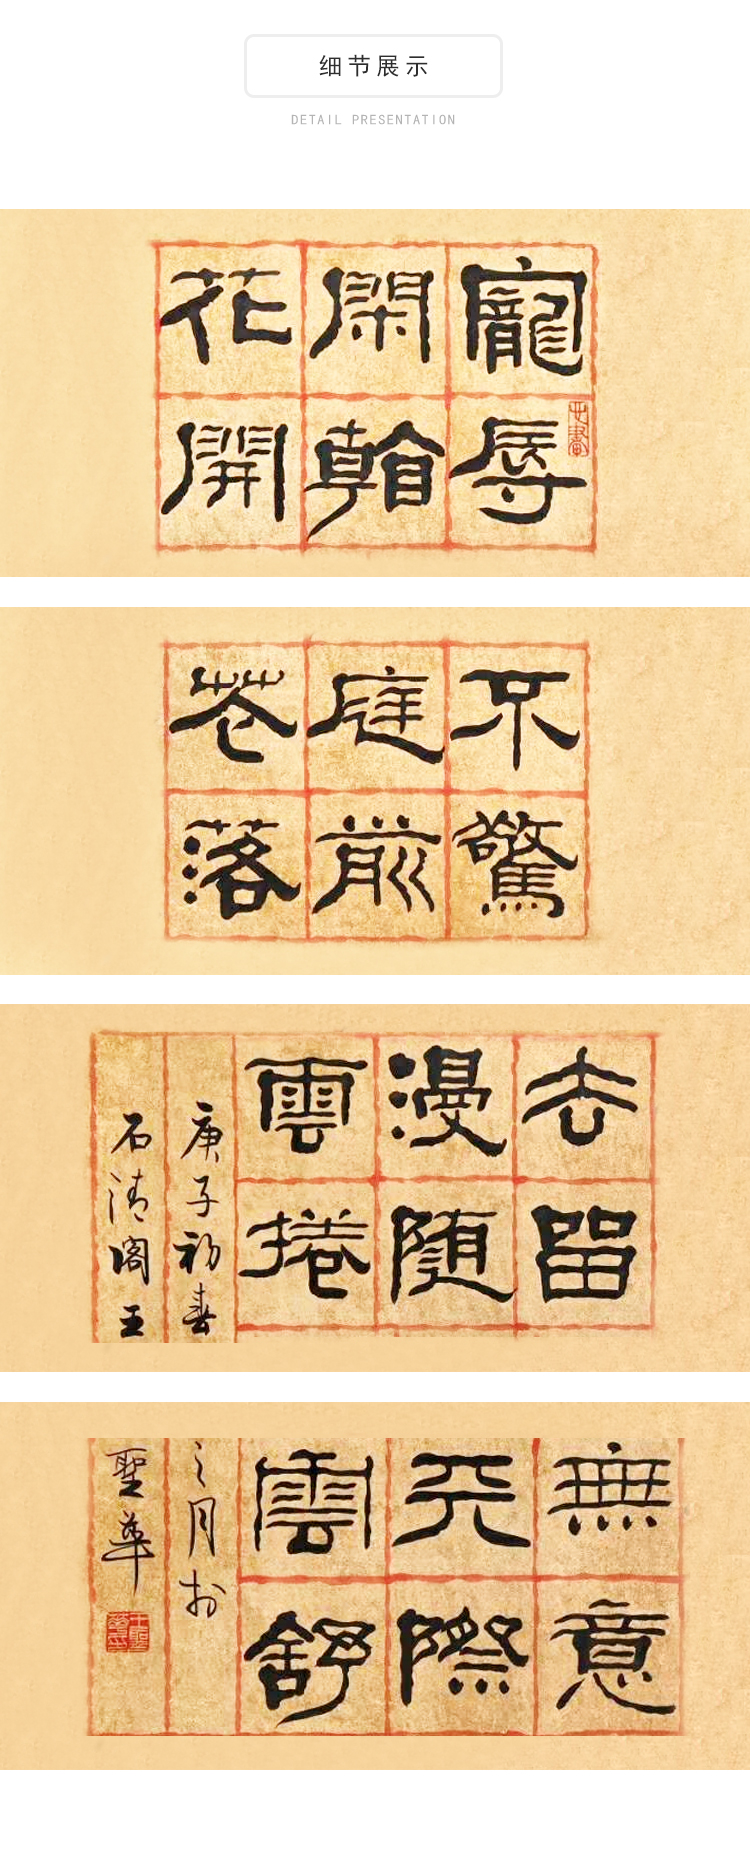 细节展示
DETAIL PRESENTATION
寵辱
閑看
花開
不驚
庭前
花落
去留
漫隨
雲捲
庚子初春
石清阁王
無意
天際
雲舒
之月於
聖華